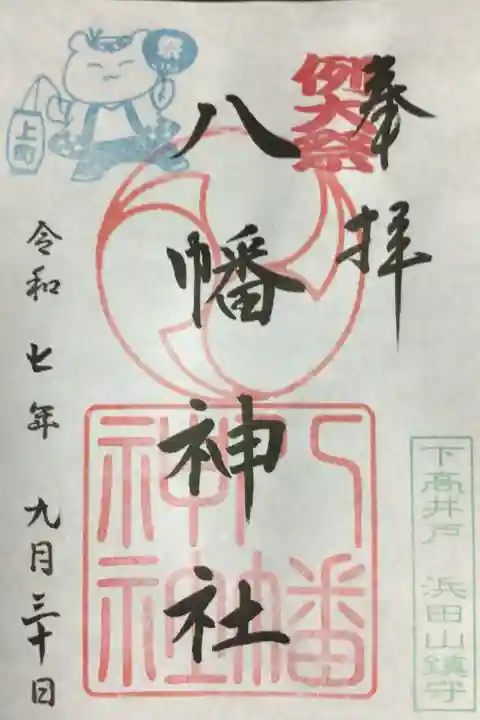 奉拝
例大祭
八幡神社
八幡
神社
令和七年九月三十日
祭
上町
下高井戸 浜田山鎮守